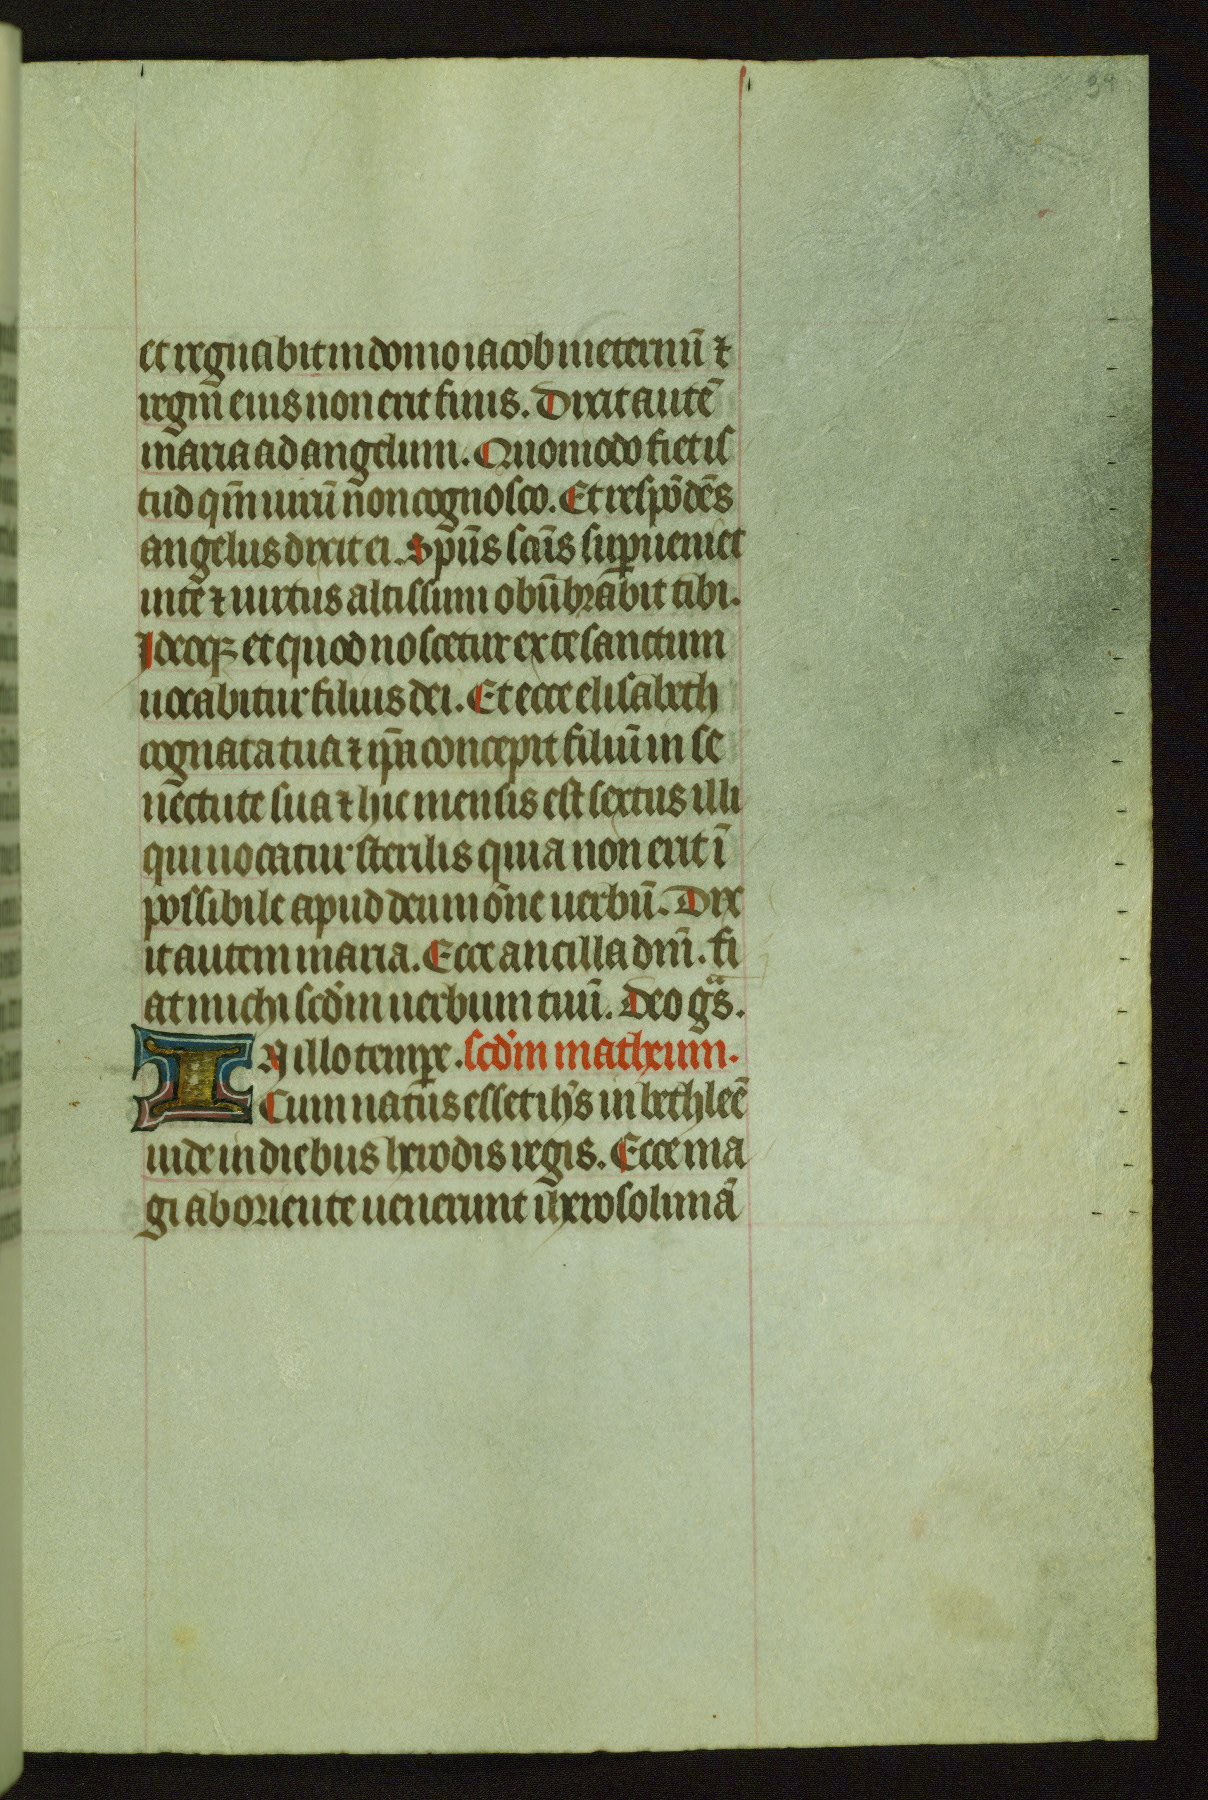 39
et regnabit in domo iacob in eternū ⁊
regnū eius non erit finis. Dixit autē
maria ad angelum. Quomodo fiet is
tud qm̄ uirū non cognosco. Et respōdēs
angelus dixit ei. Sp̄us sc̄us suꝑueniet
in te ⁊ uirtus altissimi obūbrabit tibi.
Ideoqꝫ et quod noscetur ex te sanctum
uocabitur filius dei. Et ecce elisabeth
cognata tua ⁊ ip̄a concepit filiū in se
nectute sua ⁊ hic mensis est sextus illi
qui uocatur sterilis quia non erit ī
possibile apud deum om̄e uerbū. Dix
it autem maria. Ecce ancilla dn̄i. fi
at michi scd̄m uerbum tuū. Deo gr̄as.
IN illo temꝑe. scd̄m matheum.
Cum natus esset ih̄s in bethleē
iude in diebus herodis regis. Ecce ma
gi ab oriente uenerunt iherosolimā